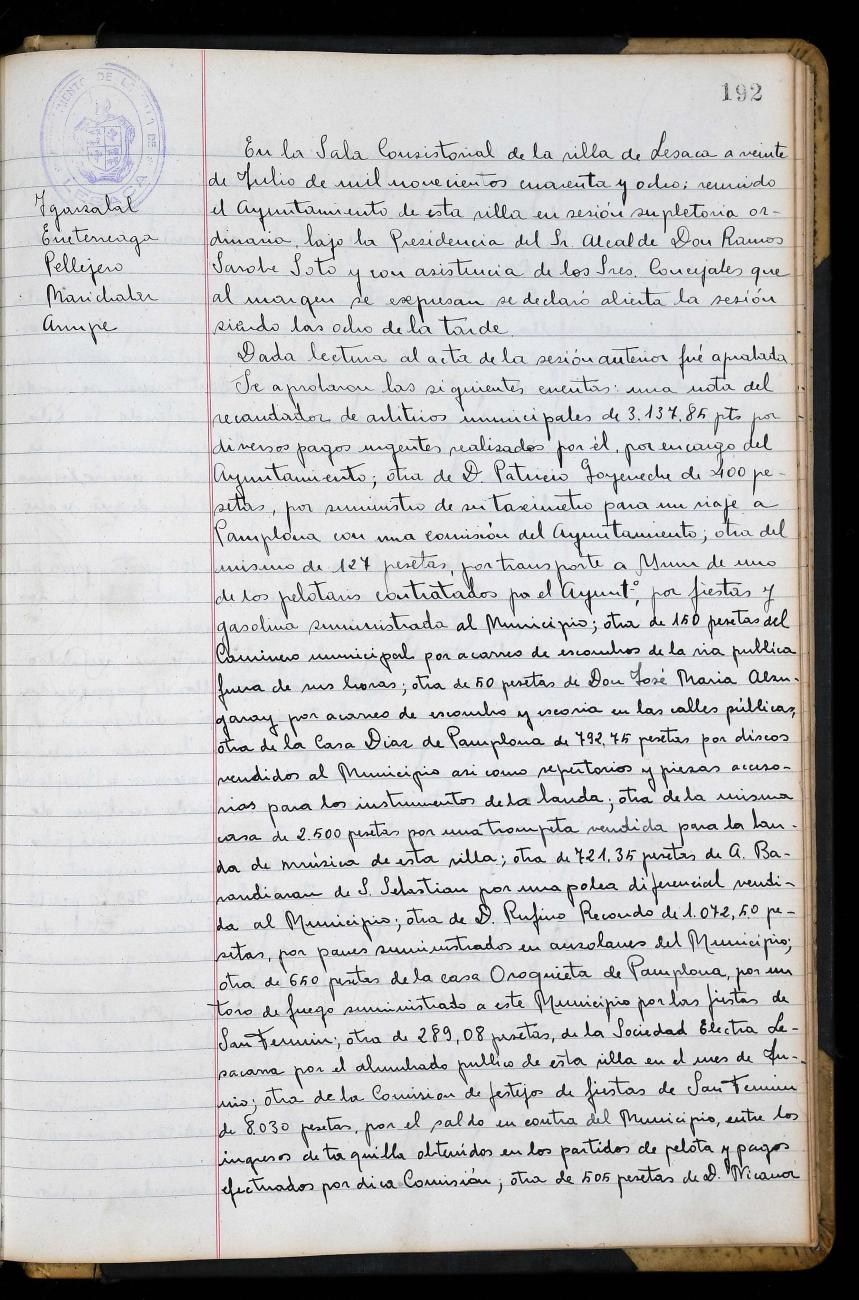 192
AYUNTAMIENTO DE LA VILLA DE
LESACA
Igarzabal
Erreterreaga
Pellejero
Marichalar
Arrupe
En la Sala Consistorial de la villa de Lesaca a veinte
de Julio de mil novecientos cuarenta y ocho; reunido
el Ayuntamiento de esta villa en sesión supletoria or-
dinaria, bajo la Presidencia del Sr. Alcalde Don Ramos
Sarobe Soto y con asistencia de los Sres. Concejales que
al margen se expresan se declaró abierta la sesión
siendo las ocho de la tarde
Dada lectura al acta de la sesión anterior fué aprobada.
Se aprobaron las siguientes cuentas: una nota del
recaudador de arbitrios municipales de 3.137,85 pts por
diversos pagos urgentes realizados por él, por encargo del
Ayuntamiento; otra de D. Patricio Goyeneche de 400 pe-
setas, por suministro de su taximetro para un viaje a
Pamplona con una comisión del Ayuntamiento; otra del
mismo de 127 pesetas, por transporte a Yrun de uno
de los pelotaris contratados po el Ayuntº, por fiestas y
gasolina suministrada al Municipio; otra de 150 pesetas del
Caminero municipal por acarreo de escombros de la via publica
fuera de sus horas; otra de 50 pesetas de Don José Maria Alzu-
garay por acarreo de escombro y escoria en las calles públicas,
otra de la Casa Diaz de Pamplona de 792,75 pesetas por discos
vendidos al Municipio asi como repertorios y piezas acceso-
rias para los instrumentos de la banda; otra de la misma
casa de 2.500 pesetas por una trompeta vendida para la ban-
da de música de esta villa; otra de 721,35 pesetas de A. Ba-
randiaran de S. Sebastian por una polea diferencial vendi-
da al Municipio; otra de D. Rufino Recondo de 1.072,50 pe-
setas, por panes suministrados en auzolanes del Municipio;
otra de 650 pesetas de la casa Oroquieta de Pamplona, por un
toro de fuego suministrado a este Municipio por las fiestas de
San Fermin; otra de 289,08 pesetas, de la Sociedad Electra Le-
sacana por el alumbrado publico de esta villa en el mes de Ju-
nio; otra de la Comision de festejos de fiestas de San Fermin
de 8.030 pesetas, por el saldo en contra del Municipio, entre los
ingresos de taquilla obtenidos en los partidos de pelota y pagos
efectuados por dica Comisión; otra de 505 pesetas de D. Nicanor